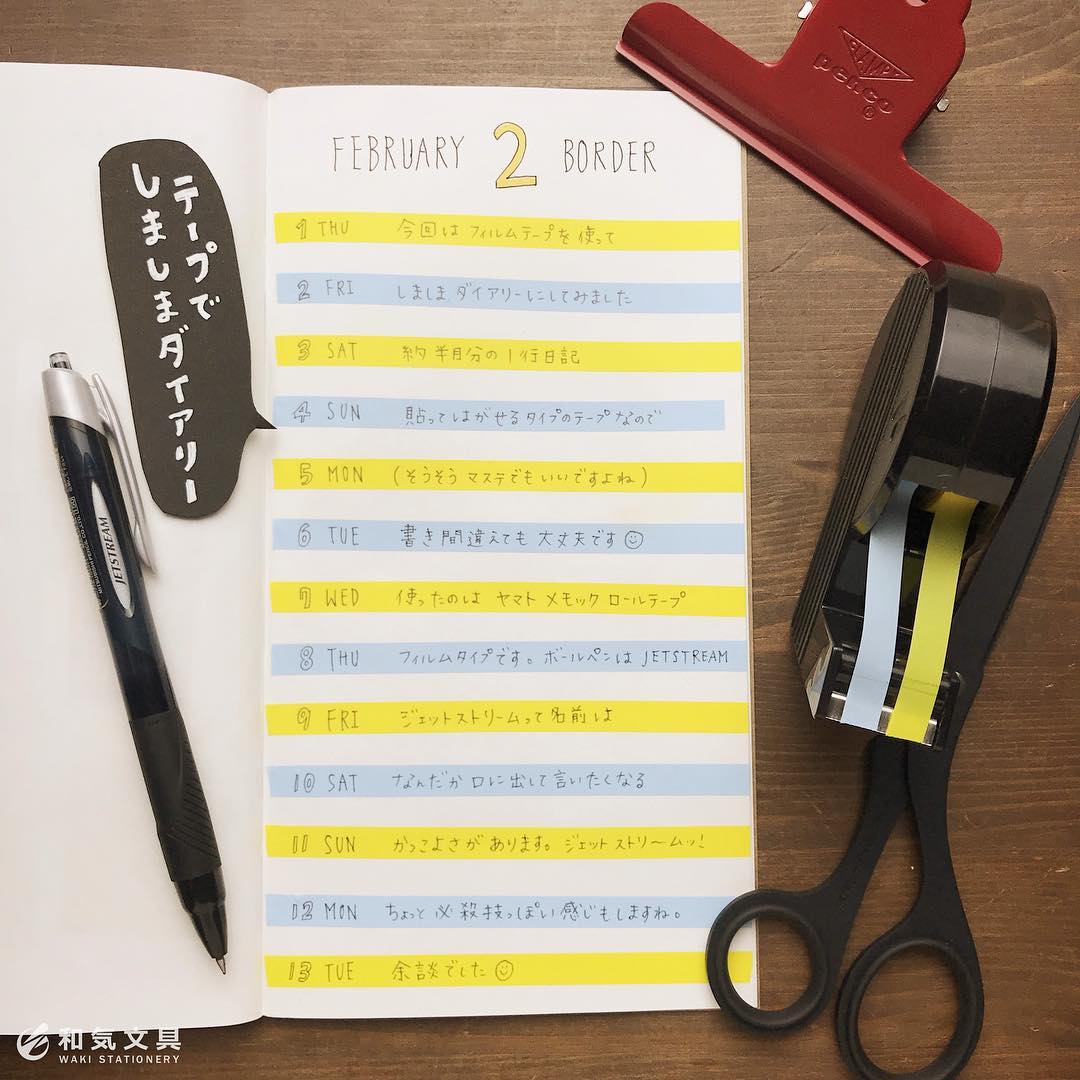 FEBRUARY 2 BORDER
テープで
しましまダイアリー
1 THU 今回は フィルムテープを 使って
2 FRI しましま ダイアリーにしてみました
3 SAT 約 半月分の 1行日記
4 SUN 貼って はがせる タイプのテープ なので
5 MON (そうそう マステでも いいですよね)
6 TUE 書き間違えても 大丈夫です
7 WED 使ったのは ヤマト メモック ロールテープ
8 THU フィルムタイプです。ボールペンは JETSTREAM
9 FRI ジェットストリームって 名前は
10 SAT なんだか 口に出して 言いたくなる
11 SUN かっこよさが あります。ジェット ストリ〜ムッ!
12 MON ちょっと 必殺技っぽい 感じもしますね。
13 TUE 余談でした
JETSTREAM
CLAMPY
penco
®
和気文具
WAKI STATIONERY